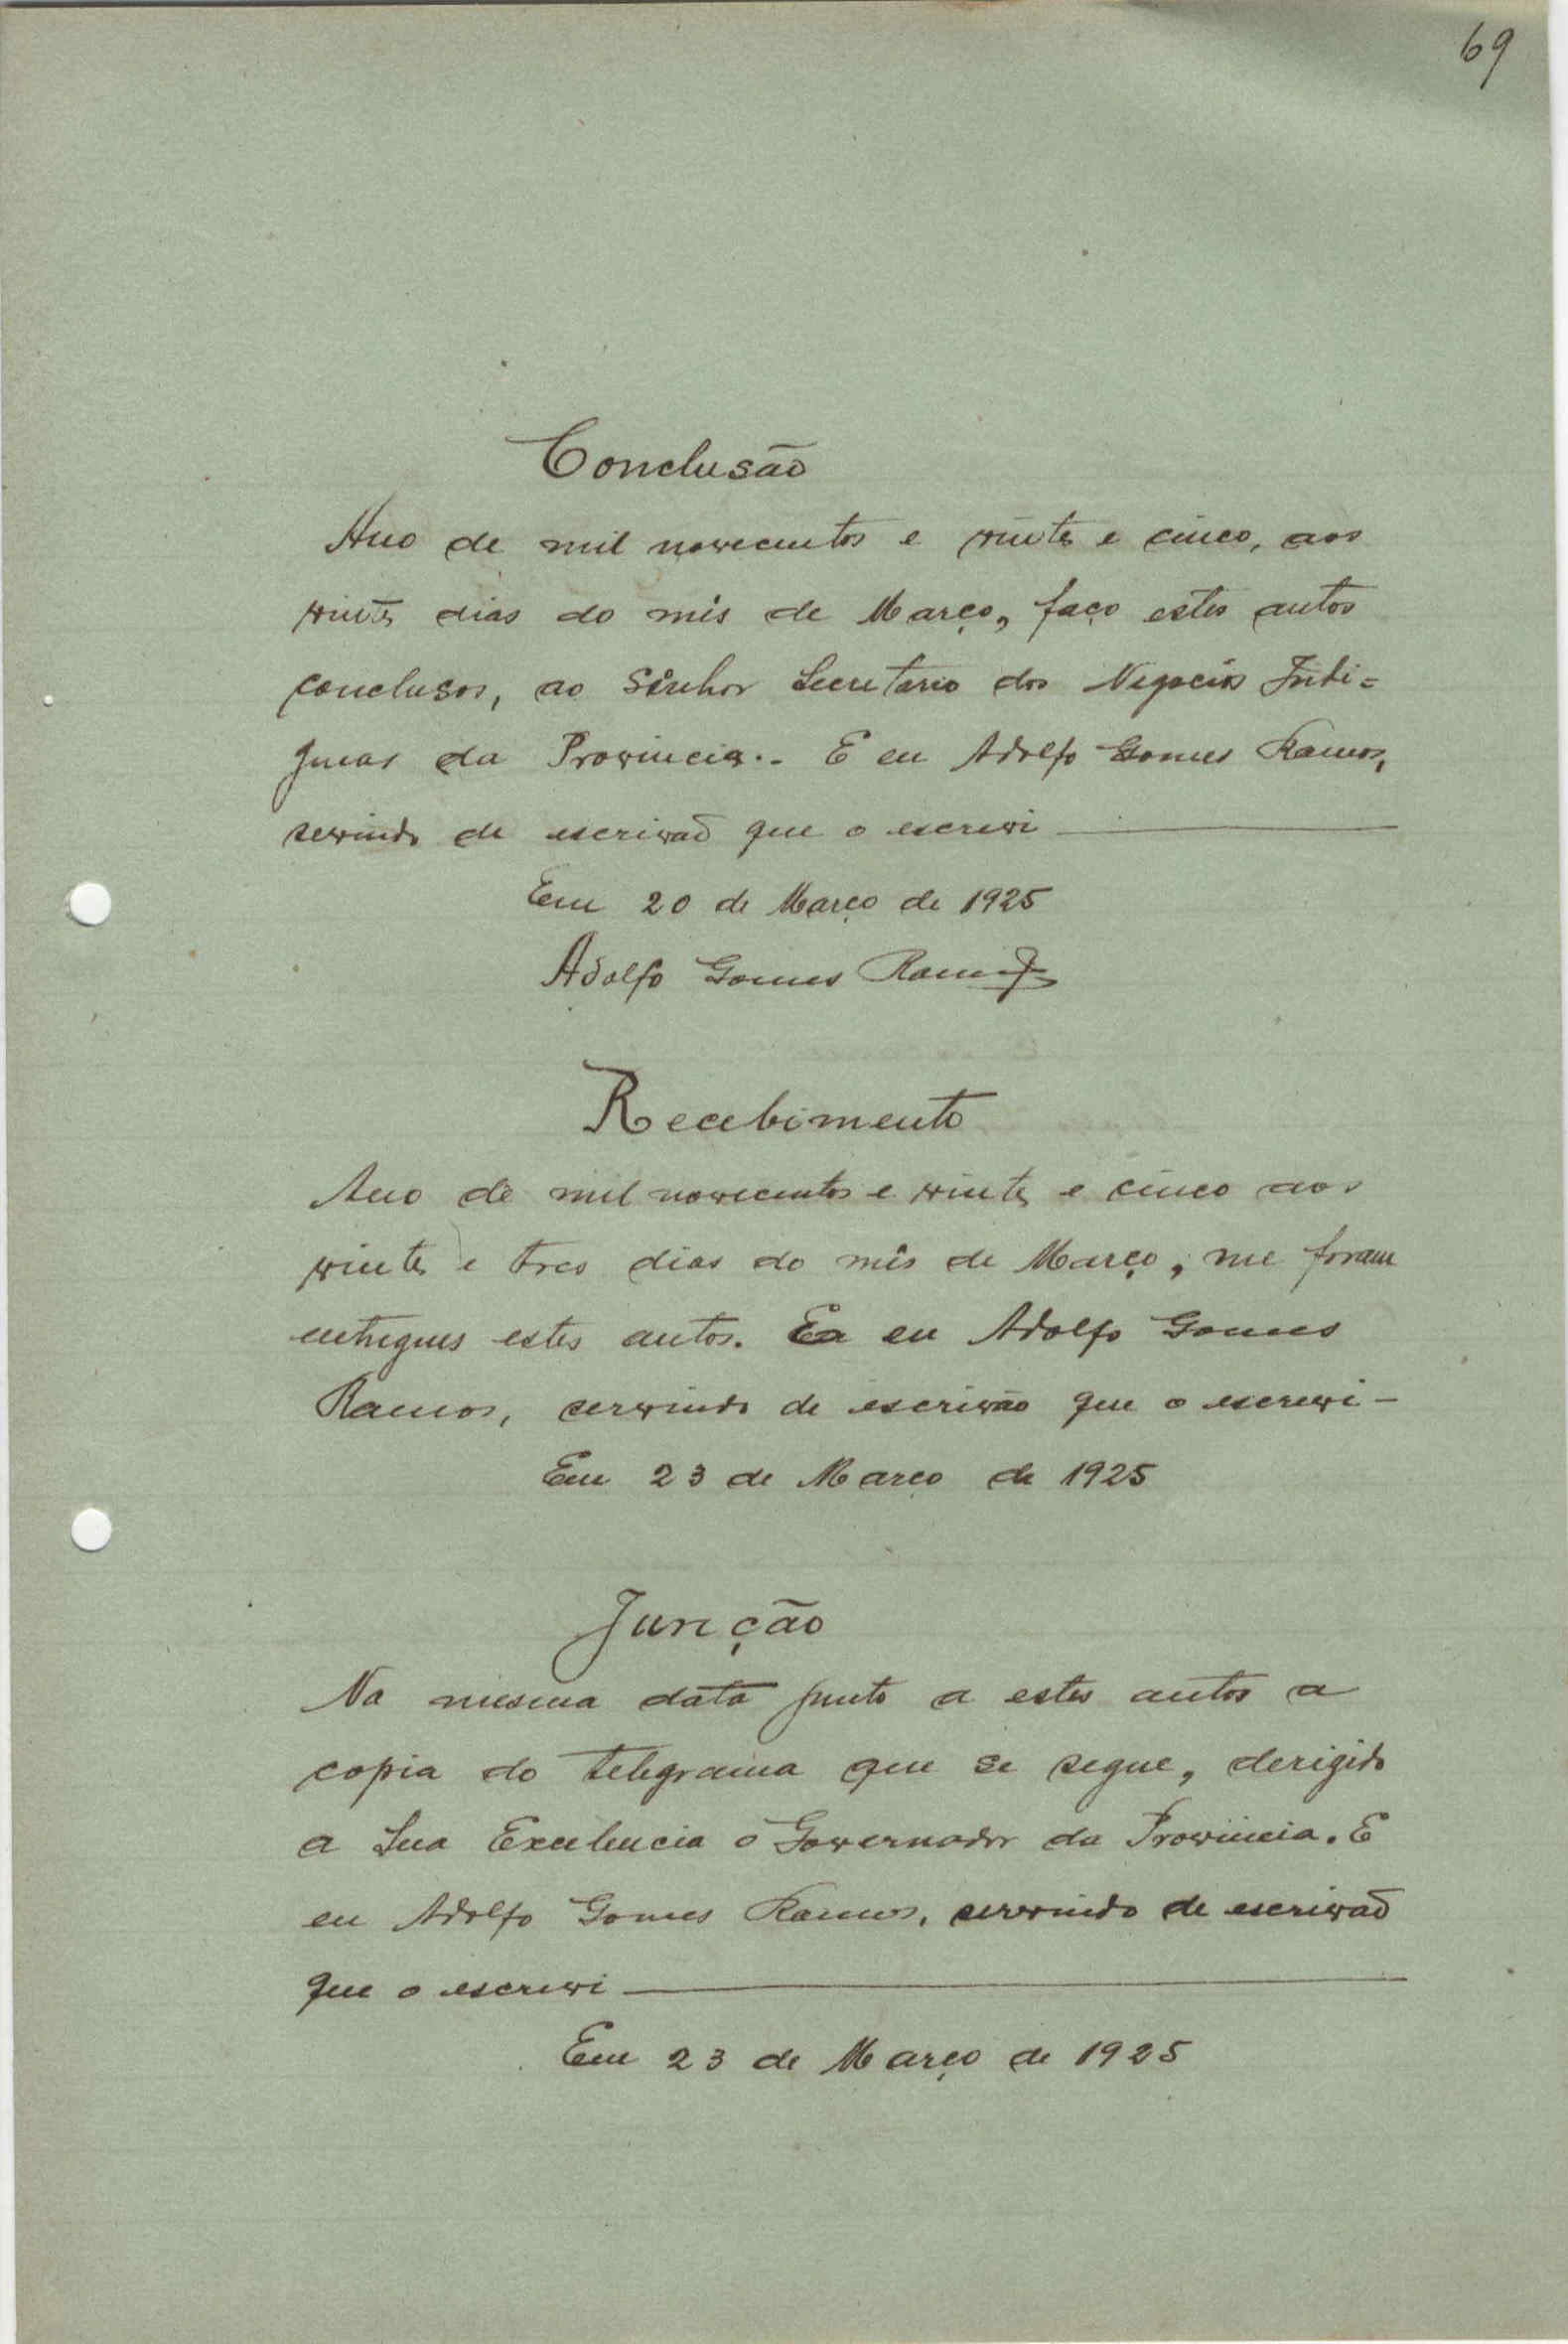 69
Conclusão
Ano de mil novecentos e vinte e cinco, aos
vinte dias do mês de Março, faço estes autos
conclusos, ao Senhor Secretario dos Negocios Indi=
genas da Provincia.. E eu Adolfo Gomes Ramos,
servindo de escrivaõ que o escrevi
Em 20 de Março de 1925
Adolfo Gomes Ramos
Recebimento
Ano de mil novecentos e vinte e cinco aos
vinte e tres dias do mês de Março, me foram
entregues estes autos. E eu Adolfo Gomes
Ramos, servindo de escrivão que o escrevi -
Em 23 de Março de 1925
Junção
Na mesma data junto a estes autos a
copia do telegrama que se segue, derigido
a Sua Excelencia o Governador da Provincia. E
eu Adolfo Gomes Ramos, servindo de escrivaõ
que o escrevi
Em 23 de Março de 1925